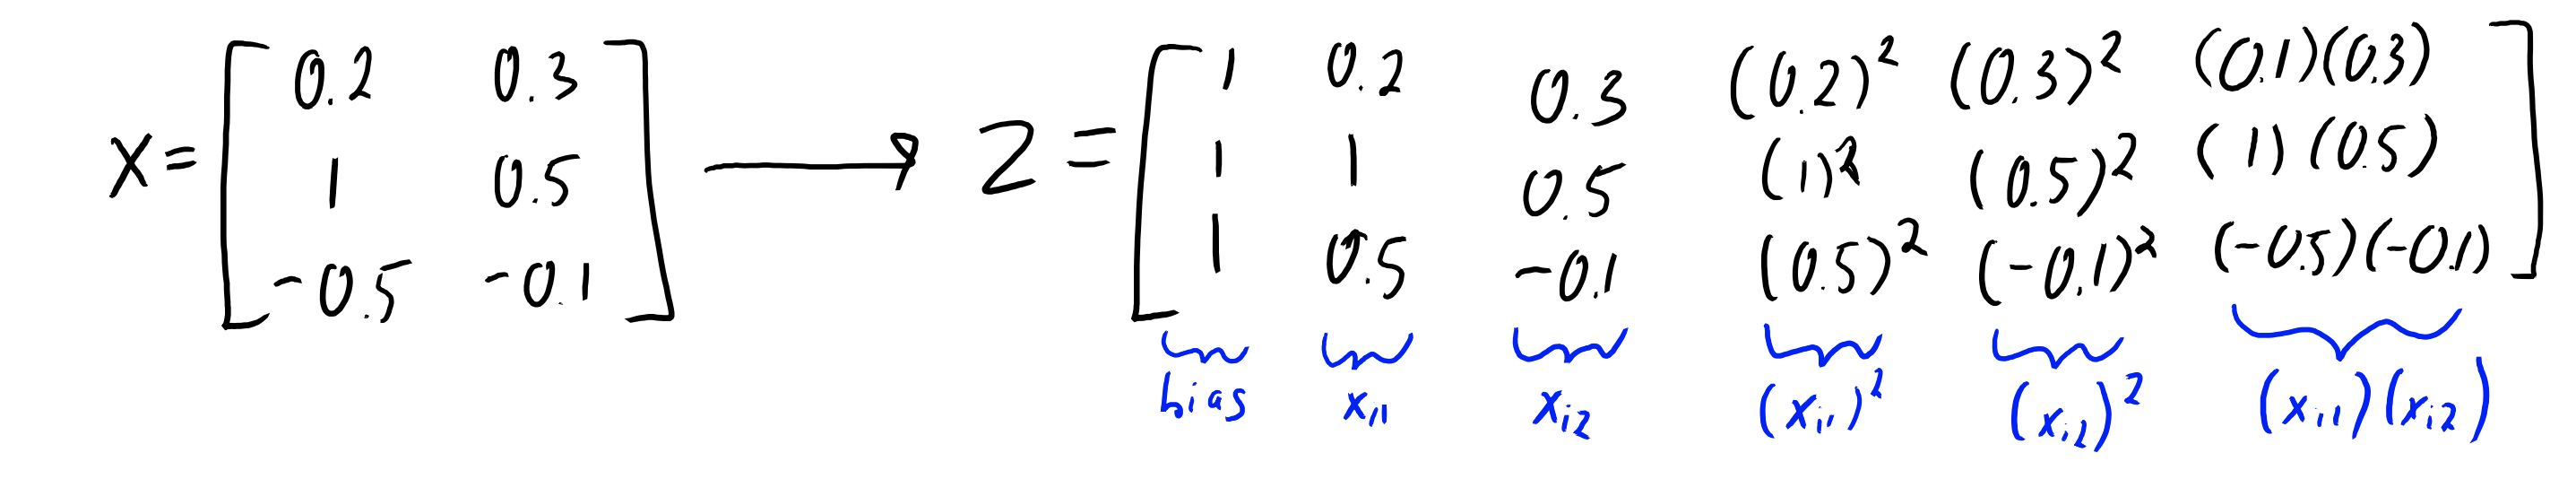 X = [ 0.2 0.3 ; 1 0.5 ; -0.5 -0.1 ] ⟶ Z = [ 1 0.2 0.3 (0.2)² (0.3)² (0.1)(0.3) ; 1 1 0.5 (1)² (0.5)² (1)(0.5) ; 1 0.5 -0.1 (0.5)² (-0.1)² (-0.5)(-0.1) ]
bias x_{i1} x_{i2} (x_{i1})² (x_{i2})² (x_{i1})(x_{i2})